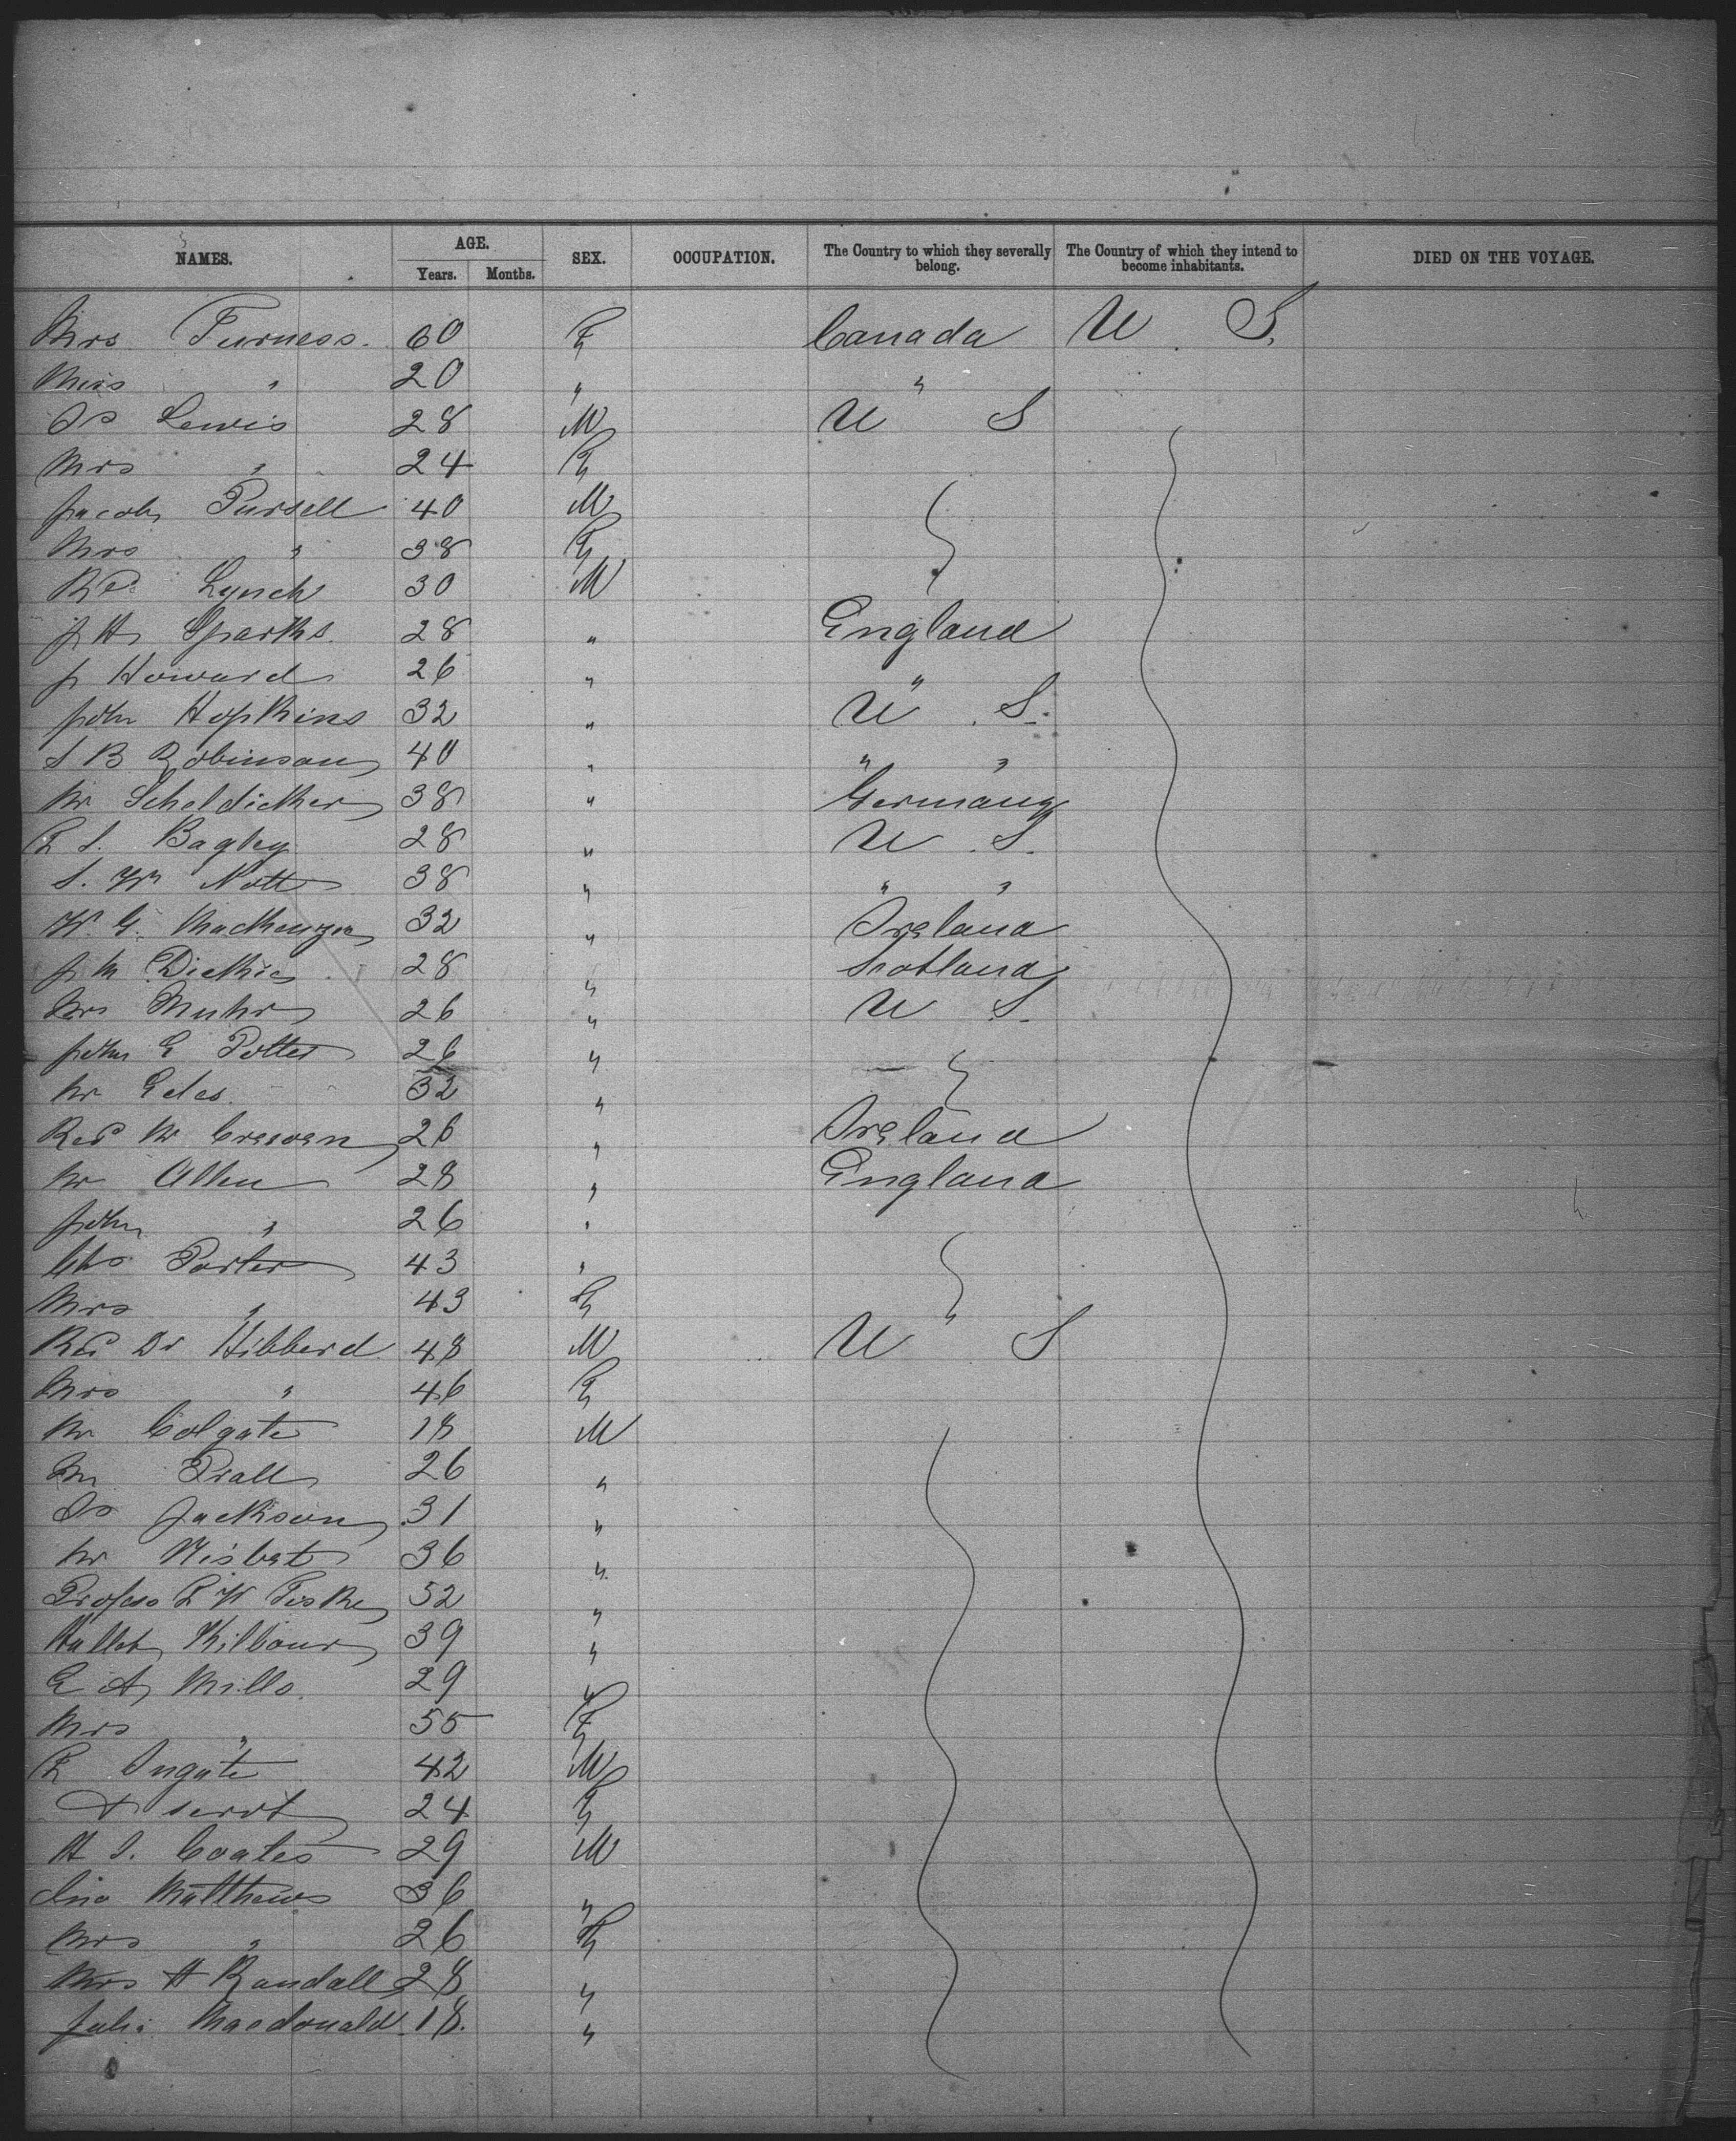 NAMES. AGE. SEX. OCCUPATION. The Country to which they severally belong. The Country of which they intend to become inhabitants. DIED ON THE VOYAGE.
Years. Months.
Mrs Furness. 60 F Canada U. S.
Miss " 20 " "
Lewis 28 M U S
Mrs " 24 F
Jacob Pursell 40 M
Mrs " 38 F
Lynch 30 M
J H Sparks. 28 " England
J Howard 26 " "
John Hopkins 32 " U. S.
S B Robinson 40 " " "
Mr 38 " Germany
R S. Bagley 28 " U. S.
S. Nott 38 " " "
W. G. MacKenzie 32 " Ireland
J M Dickie 28 " Scotland
Muhr 26 " U S.
John E Potter 26 "
Mr Edes. 32 "
Rev Mr Craven 26 " Ireland
Mr Allen 28 " England
John " 26 "
Chs Porter 43 "
Mrs " 43 F "
Rev Dr Hibberd 48 M U S
Mrs " 46 F
Mr Colgate 18 M
Mr Prall 26 "
Jackson 31 "
Mr Nisbet 36 "
W Fiske 52 "
Hallet Kilbourn 39 "
E A Mills. 29 "
Mrs " 55 F
R Ingate 42 M
& servt 24 F
H Coates 29 M
Jno Matthews 36 "
Mrs " 26 F
Mrs H Randall 28 "
Julia Macdonald. 18. "